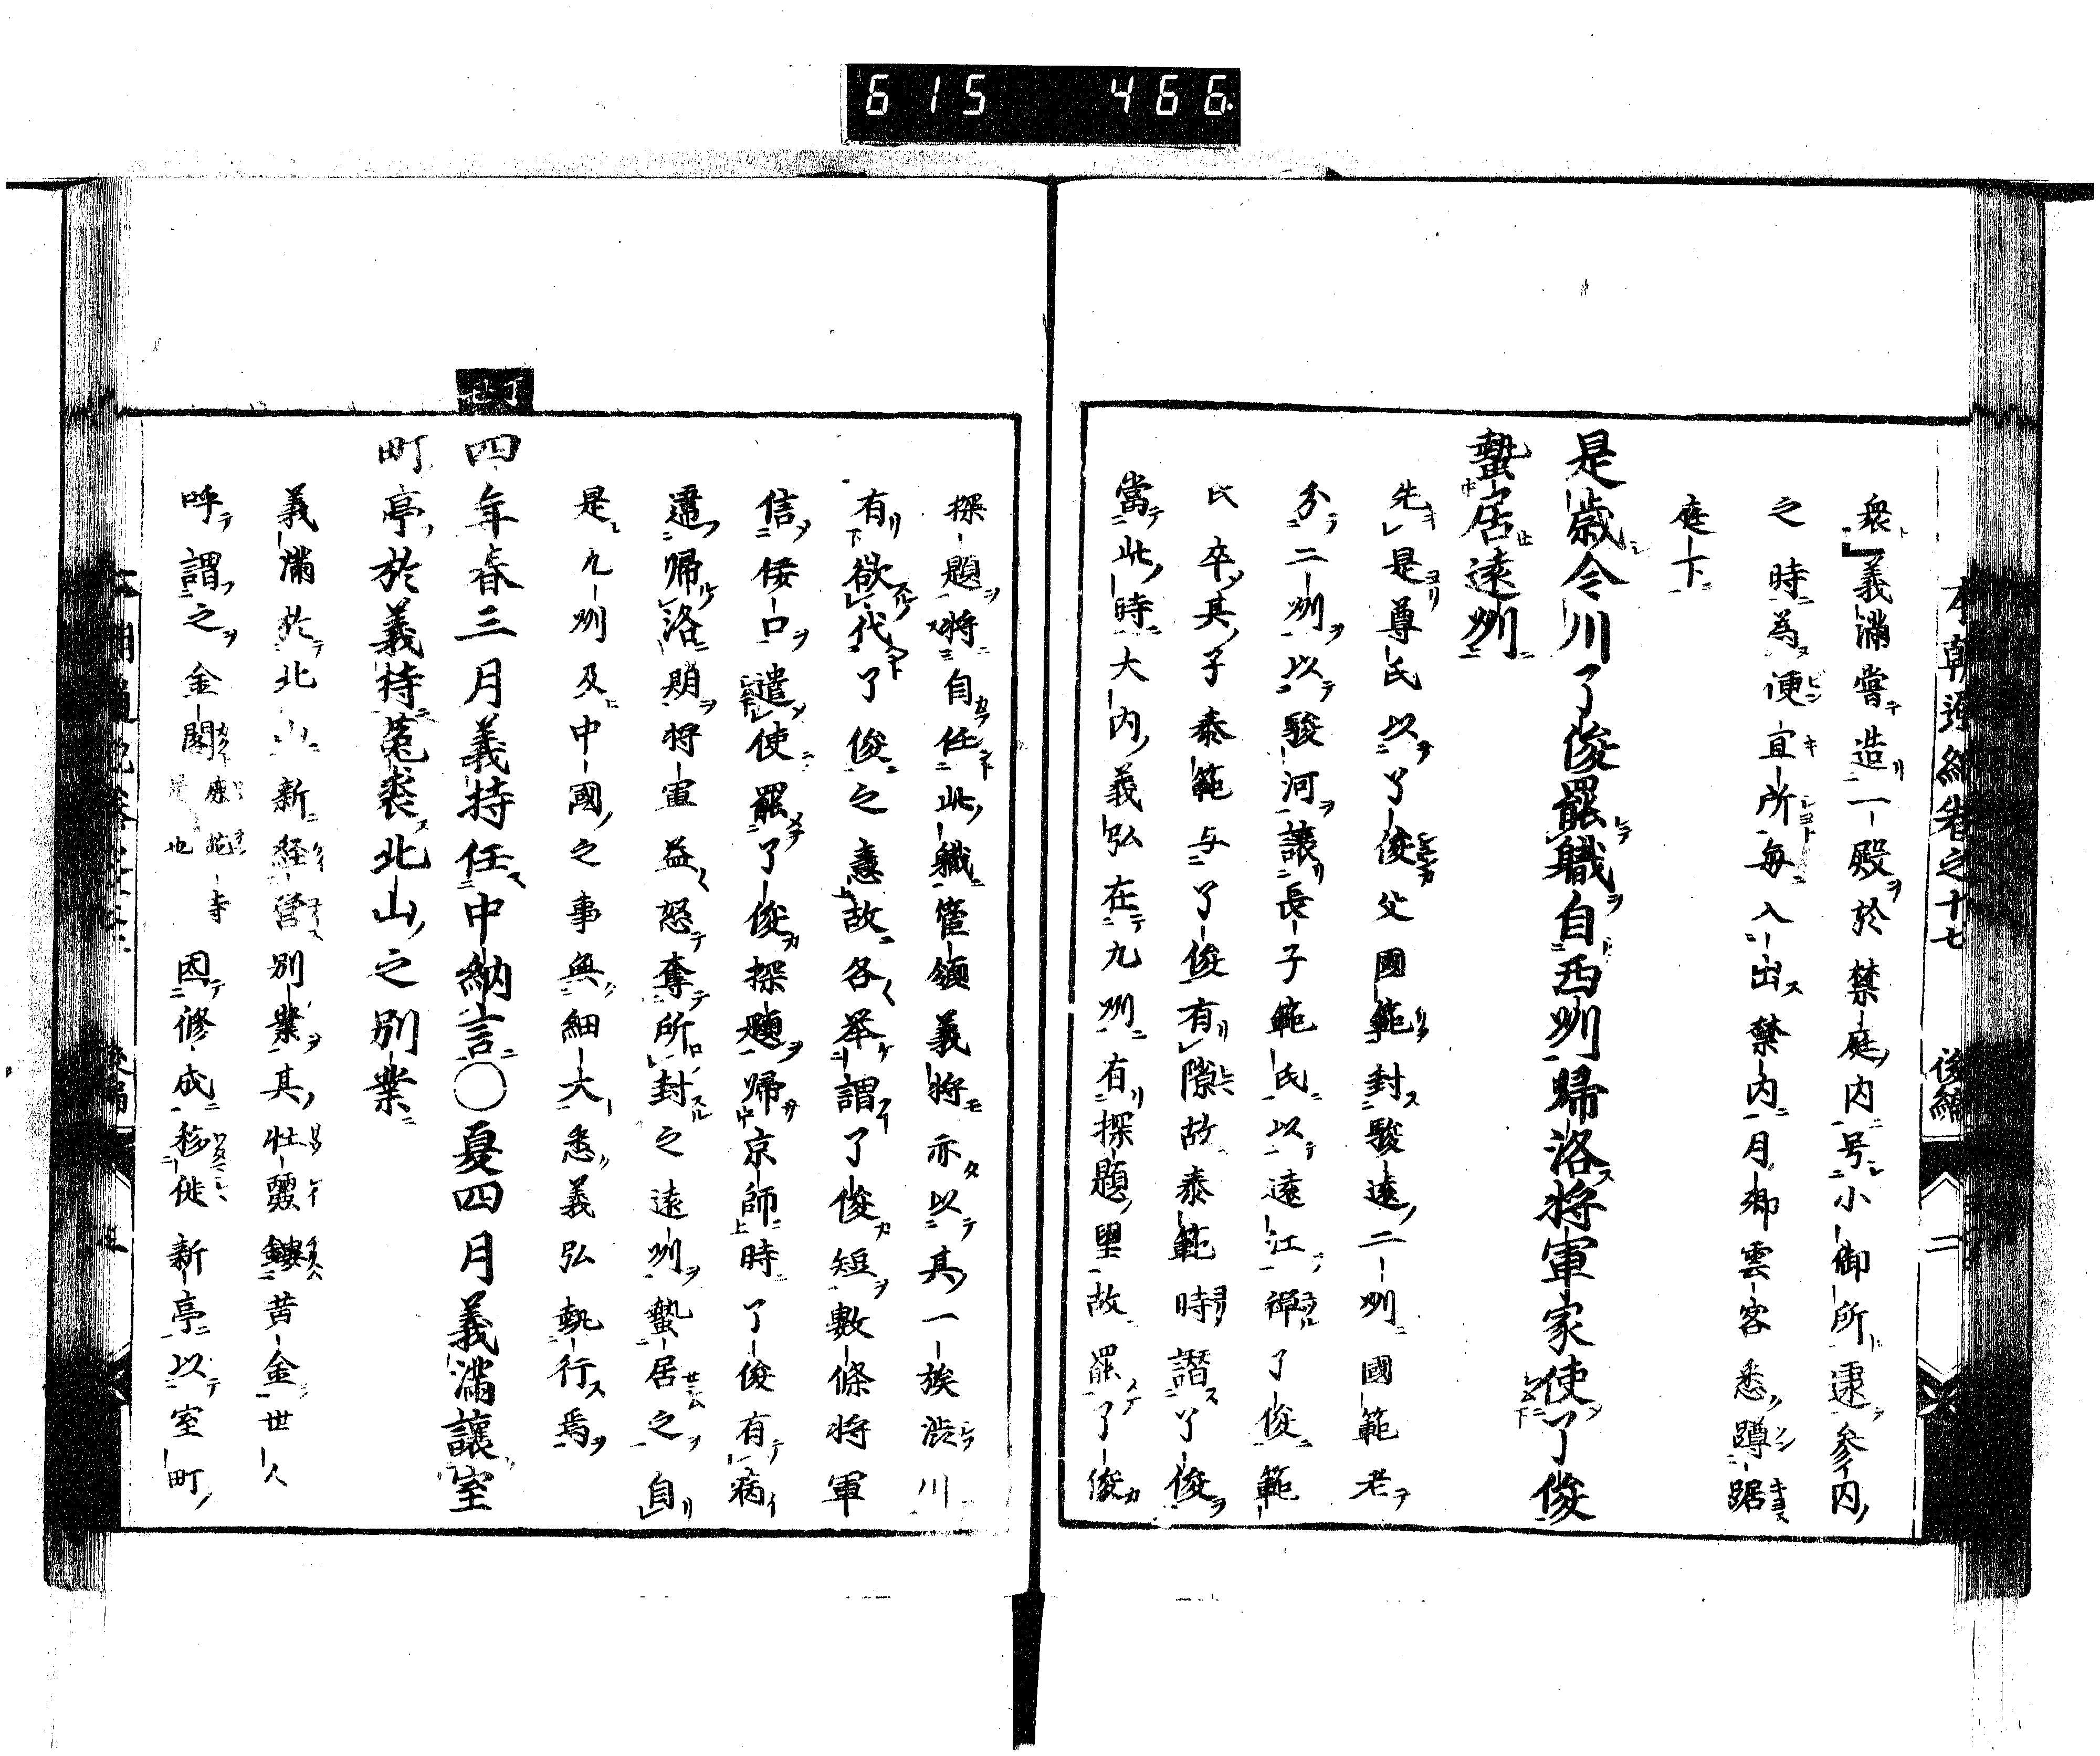 615 466
本朝通紀卷之十七 後編 二
衆義滿嘗造一殿於禁庭内号小御所逮参内
之時為便宜所毎入出禁内月卿雲客悉蹲踞
庭下
是歳今川了俊罷職自西州歸洛將軍家使了俊
蟄居遠州
先是尊氏以了俊父國範封駿遠二州國範老
分二州以駿河讓長子範氏以遠江禅了俊範
氏卒其子泰範与了俊有隙故泰範時譖了俊
當此時大内義弘在九州有探題望故罷了俊
探題將自任此職管領義將亦以其一族澁川
有欲代了俊之意故各举謂了俊短數條將軍
信佞口遣使罷了俊探題歸京師時了俊有病
遣歸洛期將軍益怒奪所封之遠州蟄居之自
是九州及中國之事無細大悉義弘執行焉
四年春三月義持任中納言〇夏四月義滿讓室
町亭於義持菟裘北山之別業
義滿於北山新経營別業其壮麗鏤黄金世人
呼謂之金閣應苑寺是也因修成移徙新亭以室町